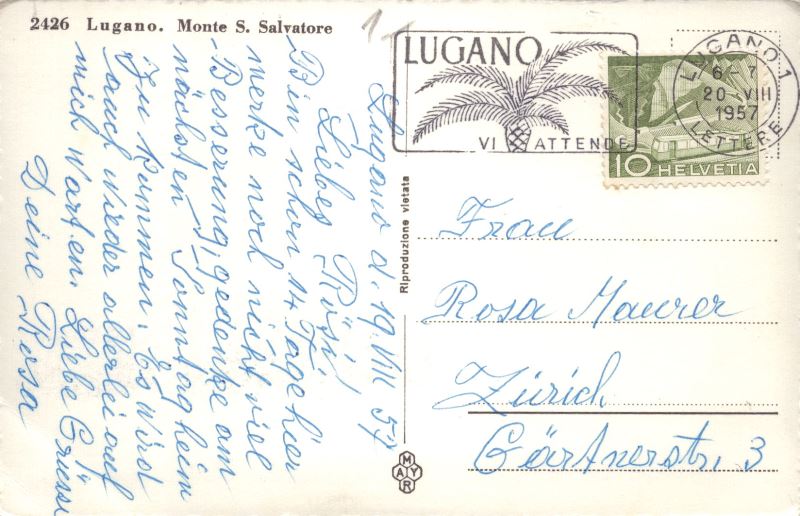 2426 Lugano. Monte S. Salvatore
Lugano d. 19. VIII 57
Liebes Rösi!
Bin schon 14 Tage hier
merke noch nicht viel
Besserung, gedenke am
nächsten Sonntag heim
zu kummen. Es wird
auch wieder allerlei auf
mich warten. Liebe Grüsse
Deine Rosa
Riproduzione vietata
MAYR
1
LUGANO
VI ATTENDE
LUGANO 1
6-7
20 VIII
1957
LETTERE
10 HELVETIA
Frau
Rosa Maurer
Zürich
Gärtnerstr. 3